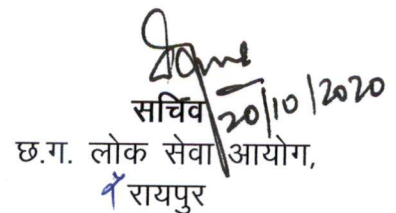 सचिव 20/10/2020
छ.ग. लोक सेवा आयोग,
रायपुर